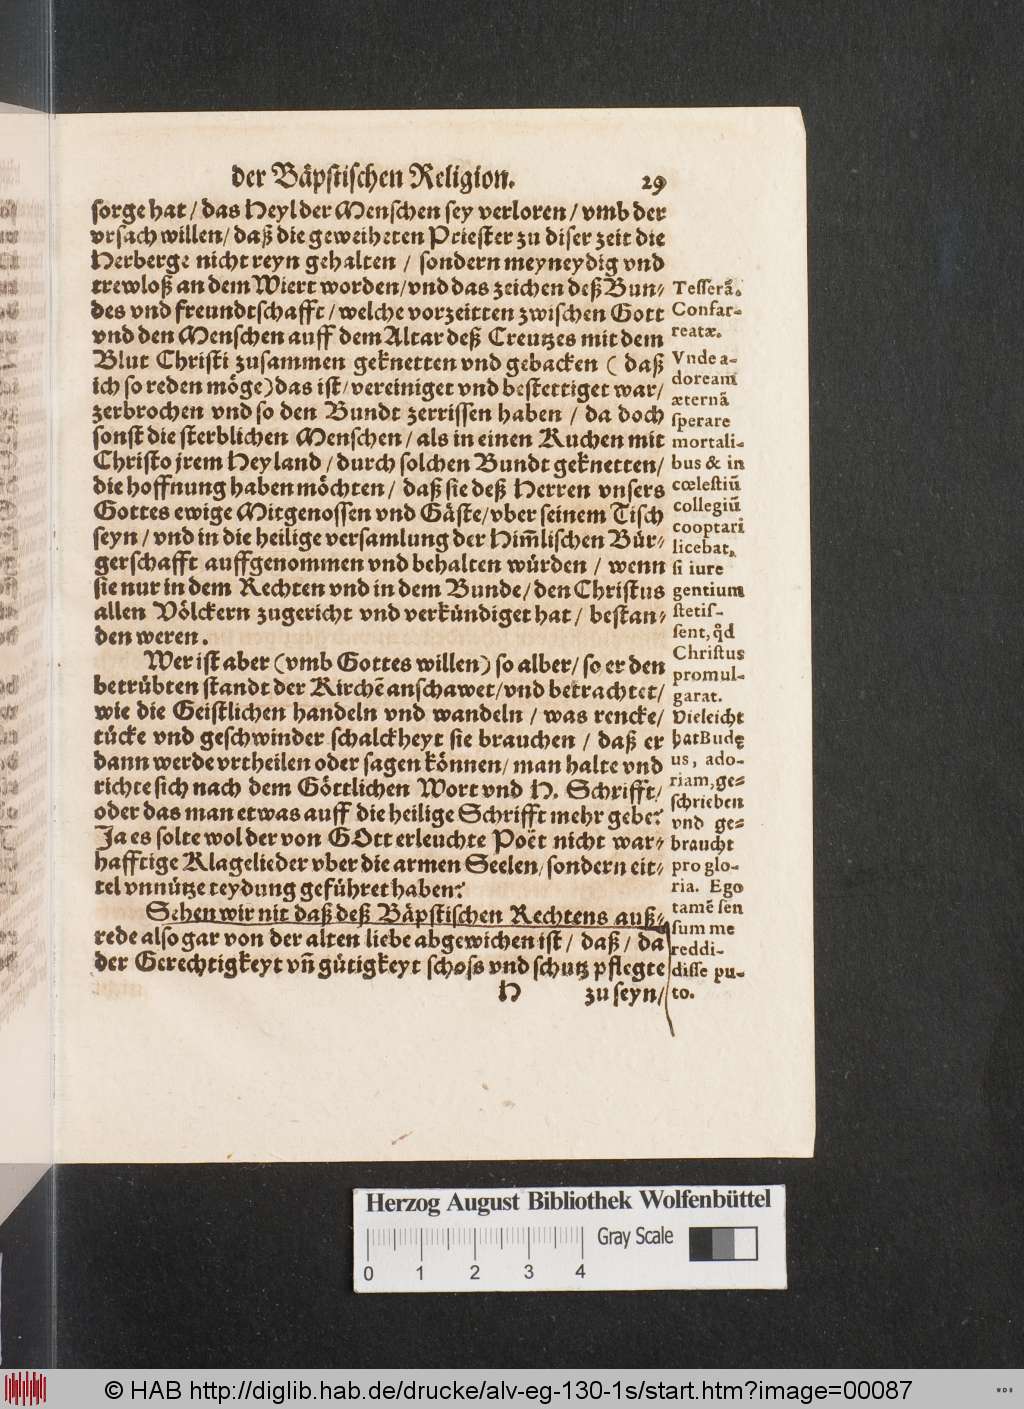 der Bäpstischen Religion. 29
sorge hat / das Heyl der Menschen sey verloren / vmb der
vrsach willen / daß die geweiheten Priester zu diser zeit die
Herberge nicht reyn gehalten / sondern meyneydig vnd
trewloß an dem Wiert worden / vnd das zeichen deß Bun⸗
des vnd freundtschafft / welche vorzeitten zwischen Gott
vnd den Menschen auff dem Altar deß Creutzes mit dem
Blut Christi zusammen geknetten vnd gebacken ( daß
ich so reden möge) das ist / vereiniget vnd bestettiget war /
zerbrochen vnd so den Bundt zerrissen haben / da doch
sonst die sterblichen Menschen / als in einen Kuchen mit
Christo jrem Heyland / durch solchen Bundt geknetten /
die hoffnung haben möchten / daß sie deß Herren vnsers
Gottes ewige Mitgenossen vnd Gäste / vber seinem Tisch
seyn / vnd in die heilige versamlung der Him̃lischen Bür⸗
gerschafft auffgenommen vnd behalten würden / wenn
sie nur in dem Rechten vnd in dem Bunde / den Christus
allen Völckern zugericht vnd verkündiget hat / bestan⸗
den weren.
Wer ist aber (vmb Gottes willen) so alber / so er den
betrübten standt der Kirchē anschawet / vnd betrachtet /
wie die Geistlichen handeln vnd wandeln / was rencke /
tücke vnd geschwinder schalckheyt sie brauchen / daß er
dann werde vrtheilen oder sagen können / man halte vnd
richte sich nach dem Göttlichen Wort vnd H. Schrifft /
oder das man etwas auff die heilige Schrifft mehr gebe?
Ja es solte wol der von GOtt erleuchte Poët nicht war⸗
hafftige Klagelieder vber die armen Seelen / sondern eit⸗
tel vnnütze teydung geführet haben?
Sehen wir nit daß deß Bäpstischen Rechtens auß⸗
rede also gar von der alten liebe abgewichen ist / daß / da
der Gerechtigkeyt vñ gütigkeyt schoss vnd schutz pflegte
H zu seyn /
Tesserā.
Confar-
reatæ.
Vnde a-
doream
æternā
sperare
mortali-
bus & in
cœlestiū
collegiū
cooptari
licebat,
si iure
gentium
stetis-
sent, qd̄
Christus
promul-
garat.
Vieleicht
hat Budę
us, ado-
riam, ge⸗
schrieben
vnd ge⸗
braucht
pro glo-
ria. Ego
tamē sen
sum me
reddi-
disse pu-
to.
Herzog August Bibliothek Wolfenbüttel
Gray Scale
0 1 2 3 4
© HAB http://diglib.hab.de/drucke/alv-eg-130-1s/start.htm?image=00087